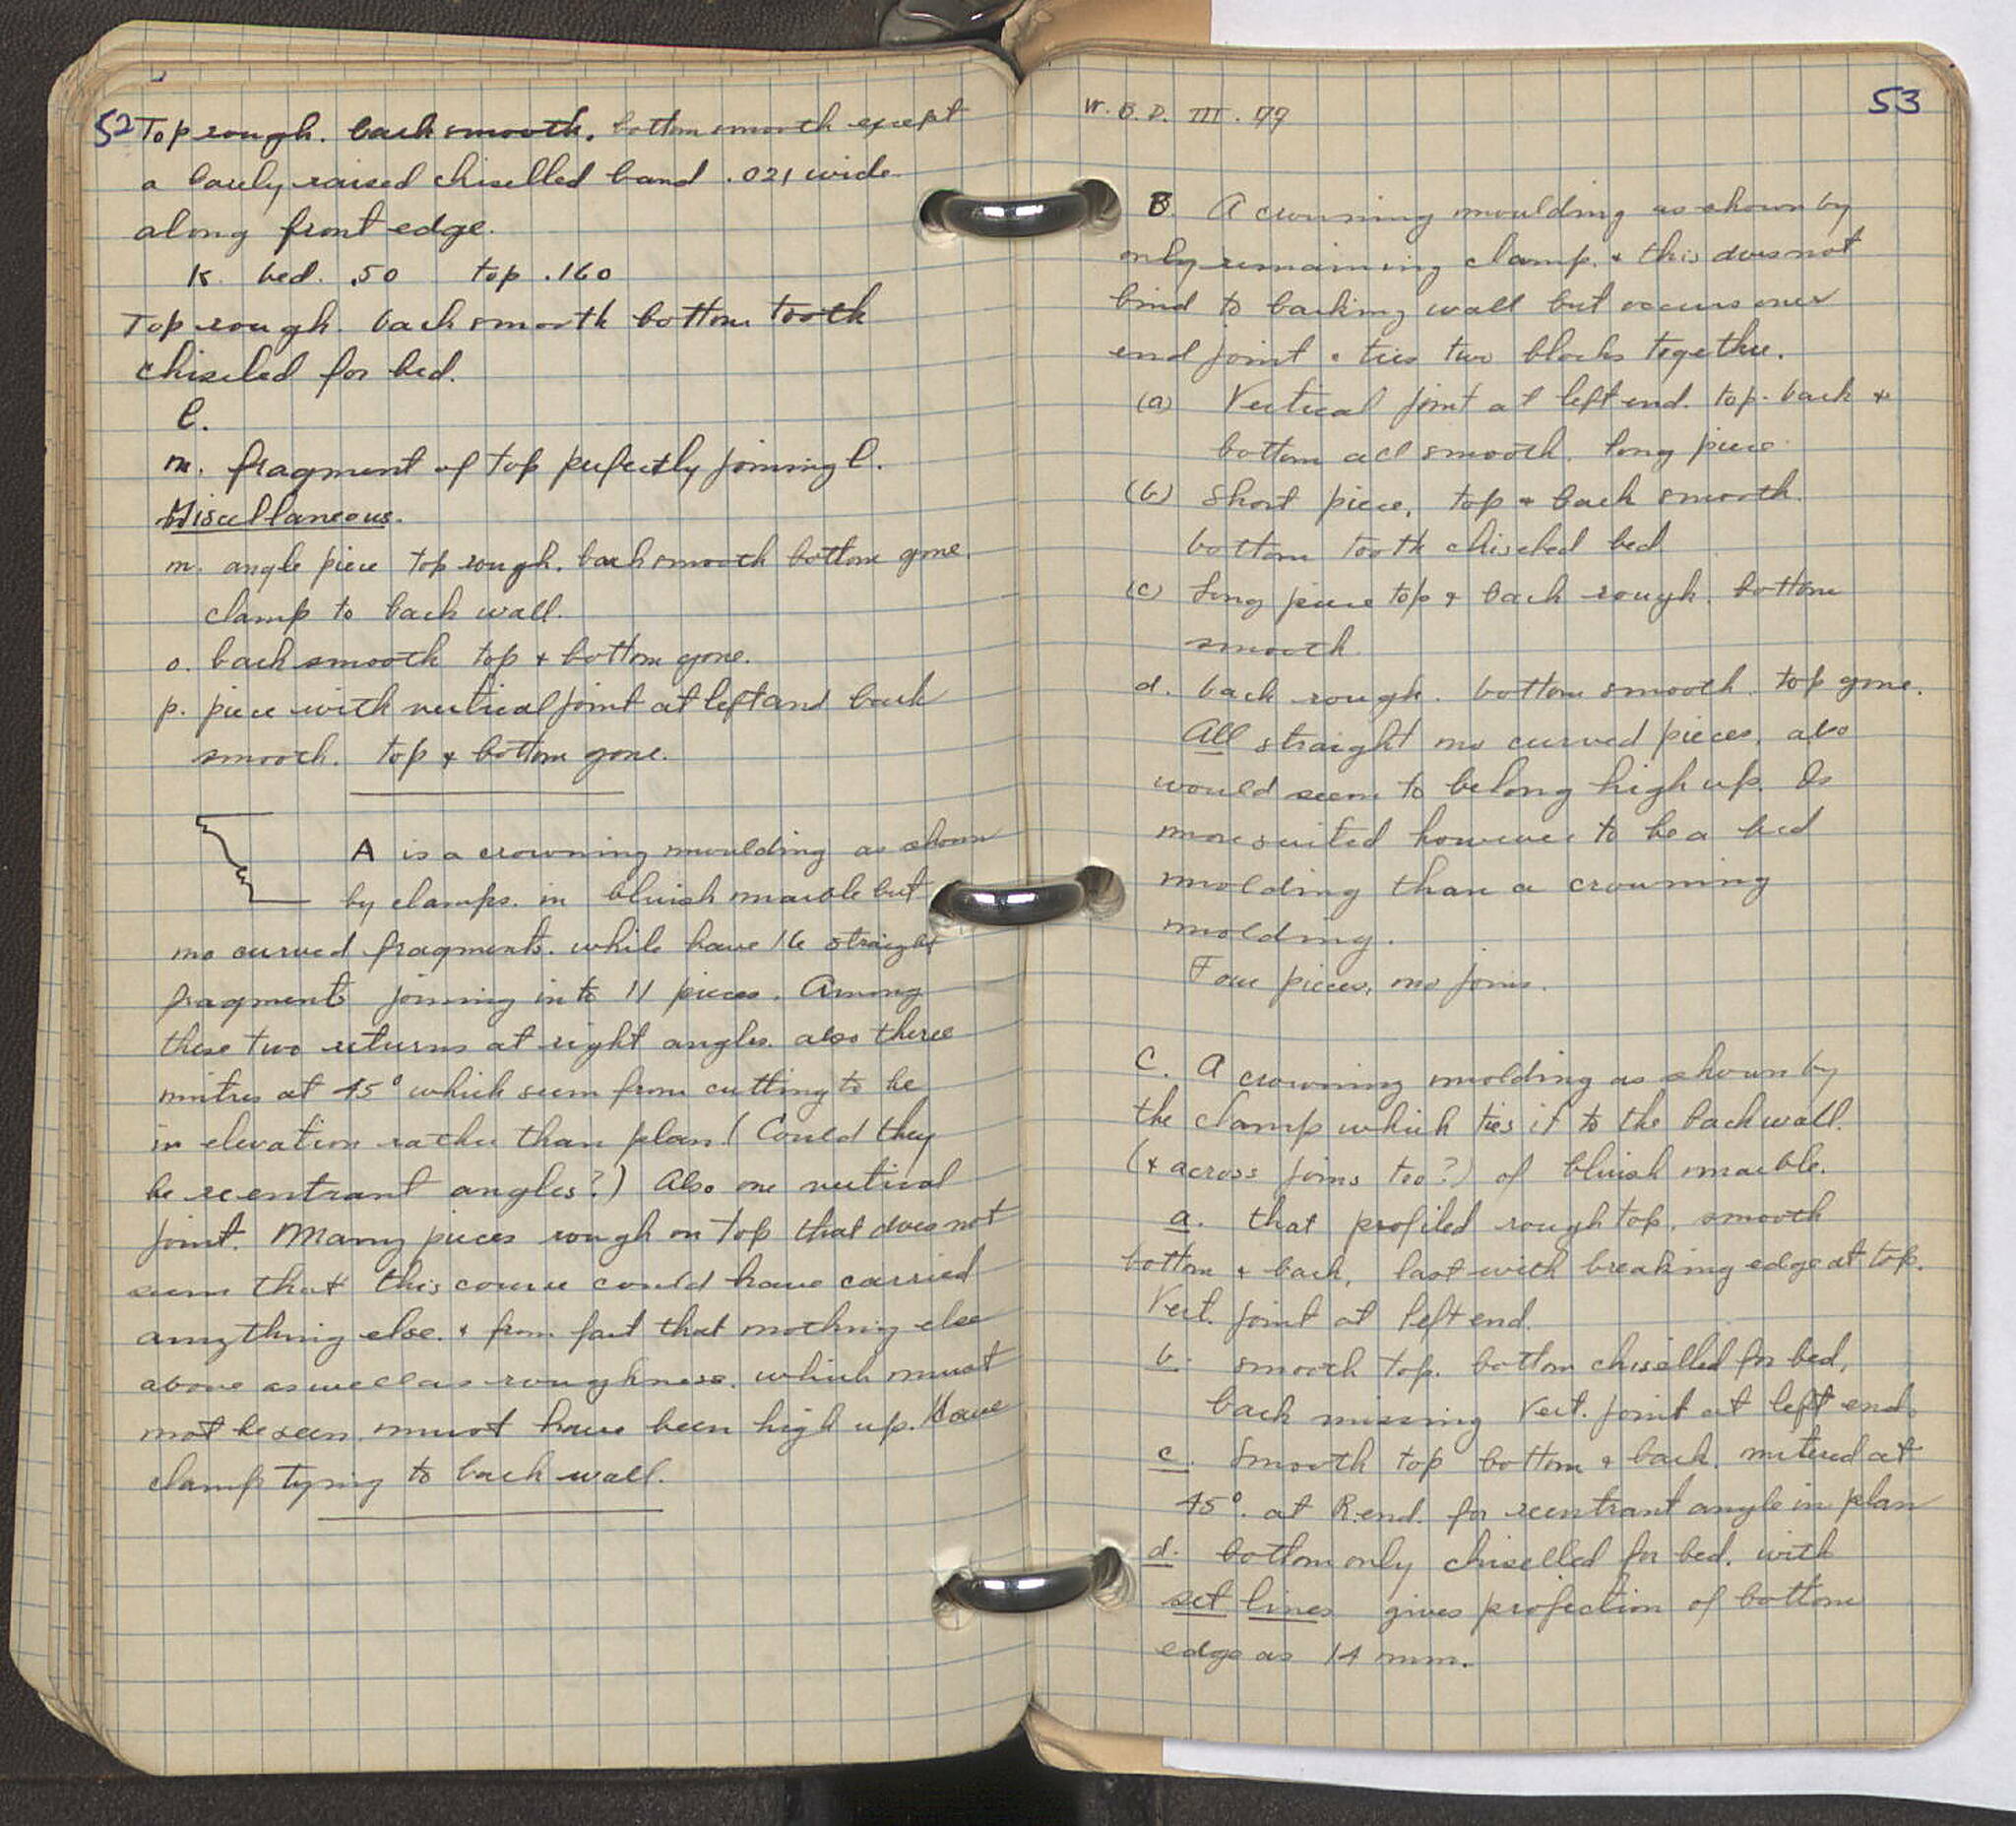 52 Top rough. back smooth. bottom smooth except
a barely raised chiselled band .021 wide
along front edge.
K. bed. .50 top .160
Top rough. back smooth bottom tooth
chiseled for bed.
l.
m. fragment of top perfectly joining l.
Miscellaneous.
m. angle piece top rough. back smooth bottom gone.
clamp to back wall.
o. back smooth top + bottom gone.
p. piece with vertical joint at left and back
smooth. top + bottom gone.
A is a crowning moulding as shown
by clamps. in bluish marble but
no curved fragments. while have 16 straight
fragments joining into 11 pieces. Among
these two returns at right angles. also three
mitres at 45° which seem from cutting to be
in elevation rather than plan! (Could they
be reentrant angles?) Also one vertical
joint. Many pieces rough on top that does not
seem that this course could have carried
anything else. + from fact that nothing else
above as well as roughness. which must
not be seen. must have been high up. Have
clamp tying to back wall.
W. B. D. III. 99
53
B. A crowning moulding as shown by
only remaining clamp. + this does not
bind to backing wall but occurs over
end joint + ties two blocks together.
(a) Vertical joint at left end. top. back +
bottom all smooth. long piece
(b) Short piece, top + back smooth.
bottom tooth chiseled bed
(c) Long piece top + back rough. bottom
smooth.
d. back rough. bottom smooth. top gone.
All straight no curved pieces, also
would seem to belong high up. Is
more suited however to be a bed
molding than a crowning
molding.
Four pieces, no joins.
C. A crowning molding as shown by
the clamp which ties it to the back wall.
(+ across joins too?) of bluish marble.
a. that profiled rough top. smooth
bottom + back, last with breaking edge at top.
Vert. joint at left end.
b. smooth top. bottom chiselled for bed,
back missing Vert. joint at left end.
c. Smooth top bottom + back. mitered at
45°. at R. end. for reentrant angle in plan
d. bottom only chiselled for bed. with
set lines gives projection of bottom
edge as 14 mm.